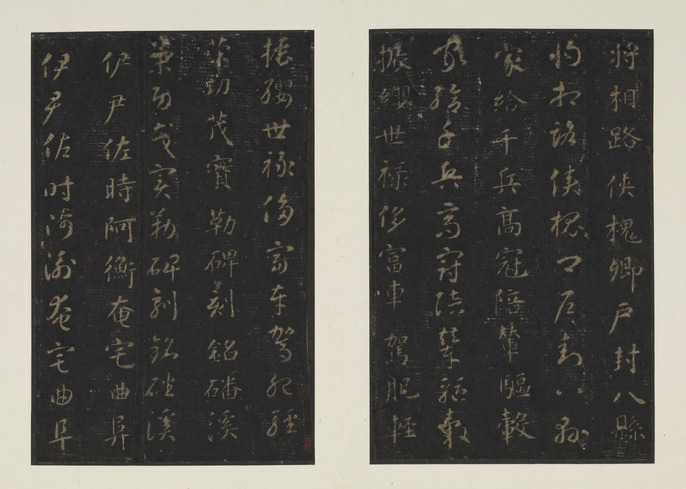 將相路俠槐卿戶封八縣
將相路俠槐卿戶封八縣
家給千兵高冠陪輦驅轂
家給千兵高冠陪輦驅轂
振纓世祿侈富車駕肥輕
振纓世祿侈富車駕肥輕
策功茂實勒碑刻銘磻溪
策功茂實勒碑刻銘磻溪
伊尹佐時阿衡奄宅曲阜
伊尹佐時阿衡奄宅曲阜